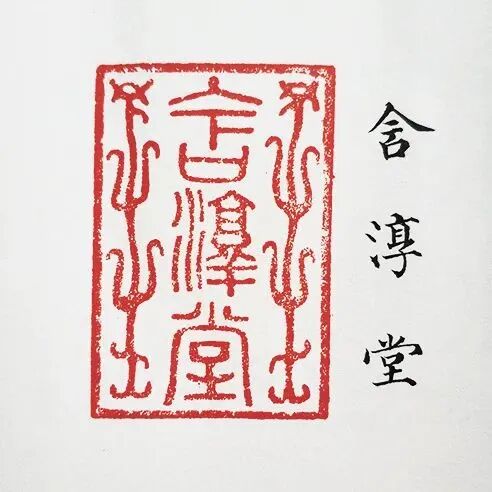 含淳堂
含淳堂